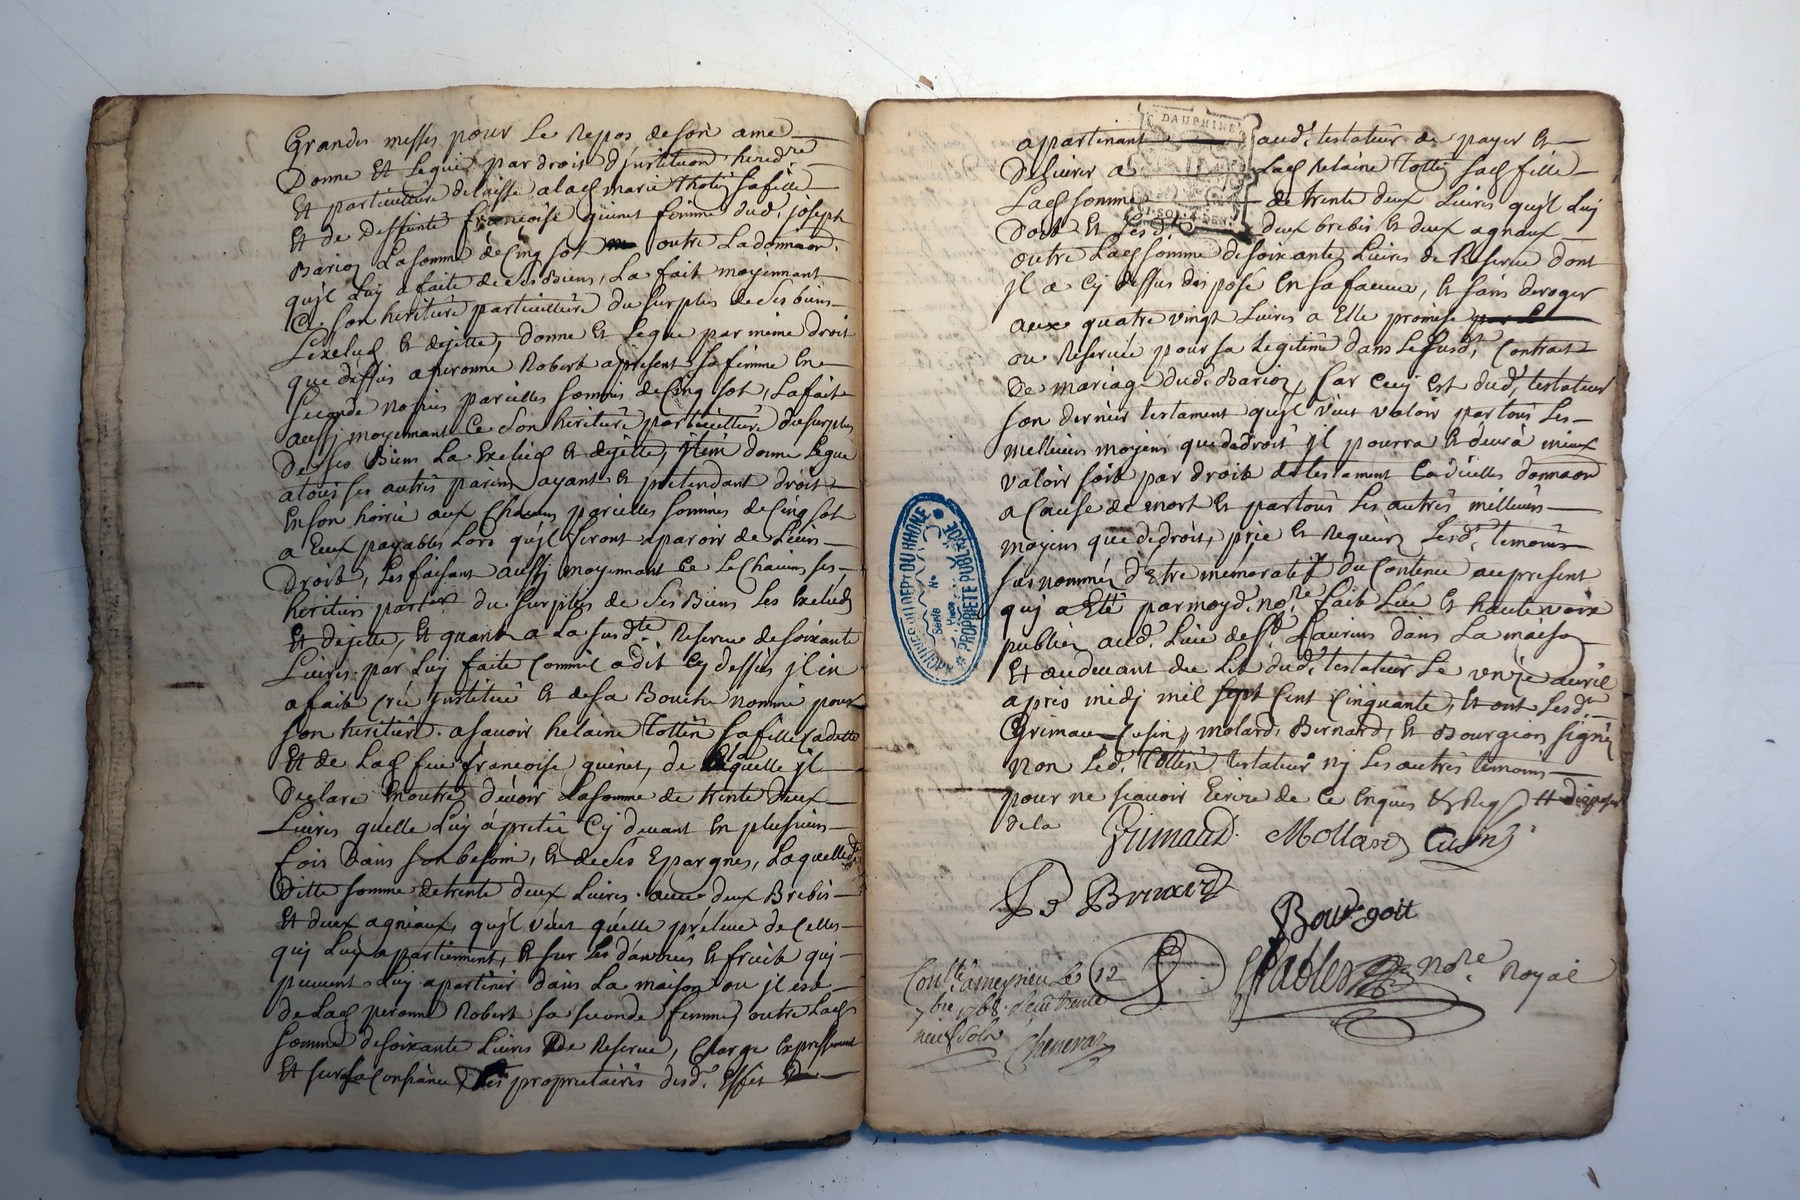 Grandes messes pour Le Repos de son ame
Donne Et Legue par droit d'jnstitution heredre
Et particulliere delaisse a lad marie thotin sa fille
Et de deffunte françoise guinet femme dud. joseph
Barioz La somme de Cinq sol outre La donnaon
qu'jl Luy a faite de ses Biens, La fait moyennant
Ce son heritiere particulliere du surplus de ses biens
L'exclud Et dejette, donne Et Legue par même droit
que dessus a peronne Robert apresent sa femme en
seconde nopces pareilles sommes de Cinq sol, La fait
aussj moyennant Ce son heritiere particulliere du surplus
de ses Biens La Exclud Et dejette, jtem donne Legue
a tous ses autres parens ayant Et pretendant droit
En son hoirie aux Chacuns pareilles sommes de Cinq sol
a Eux payables Lors qu'jl feront aparoir de Leurs
droit, Les faisant aussj moyennant Ce Le Chacuns ses
heritiers parters du surplus de ses Biens Les Exclud
Et dejette, Et quant a La susdte Reserve de soixante
Livres par Luy faite Comme a dit Cy dessus jl en
a fait Créé jnstitué Et de sa Bouche nommé pour
son heritiere a sçavoir helaine Tottin sa fille
Et de Lad feue françoise guinet, de Laquelle jl
declare En outre devoir La somme de trente deux
Livres quelle Luy a pretée Cy devant En plusieurs
fois dans son besoin, Et de ses Epargnes, Laquelle
ditte somme de trente deux Livres avec deux Brebis
Et deux agneaux, qu'jl veut qu'elle préleve de Celles
quj Luy apartiennent, Et sur Les danrées Et fruits quj
peuvent Luy apartenir dans La maison ou jl est
de Lad peronne Robert sa seconde femme, outre Lad
somme de soixante Livres De Reserve, Charge Expressement
Et sur sa Confiance Les proprietaires desd. Effets
DAUPHINE
apartenant aud. testateur de payer Et
delivrer a Lad helaine Tottin sad fille
Lad somme de trente deux Livres qu'jl Luy
doit Et Lesdts deux brebis Et deux agnaux
outre Lad somme de soixante Livres de Reserve dont
jl a Cy dessus disposé En sa faveur, Et sans deroger
aux quatre vingt Livres a Elle promise
ou Reservée pour sa Legitime dans Le susdt Contract
de mariage dud. Barioz, Car Cecy Est dud. testateur
son dernier testament qu'jl veut valoir par tous Les
meilleurs moyens que de droit jl pourra Et devra mieux
valoir soit par droit de testament Codicilles donnaon
a Cause de mort Et par tous Les autres meilleurs
moyens que de droit, prie Et Requiert Lesd. temoins
susnommés d'Etre memoratifs du Contenu au present
quj a Eté par moyd. nore fait Lue Et haute voix
publiée aud. Lieu de st Laurens dans La maison
Et au devant du Lit dud. testateur Le onzje avril
apres midj mil sept Cent Cinquante, Et ont Lesdts
Grimaud Cusin, molard, Bernard, Et Bourgeon signéz
non Led. Tottin testateur nj Les autres temoins
pour ne sçavoir Ecrire de Ce Enquis Et Reqs
de la
Grimaud. Mollard Cusin
P Bernard
Bourgoit
nore Royal
Conllé a meyzieu Le 12
7bre 1768. Reçu trente
neuf sols
Chenevaz
ARCHIVES DU DEPT DU RHÔNE
PROPRIÉTÉ PUBLIQUE
Série No